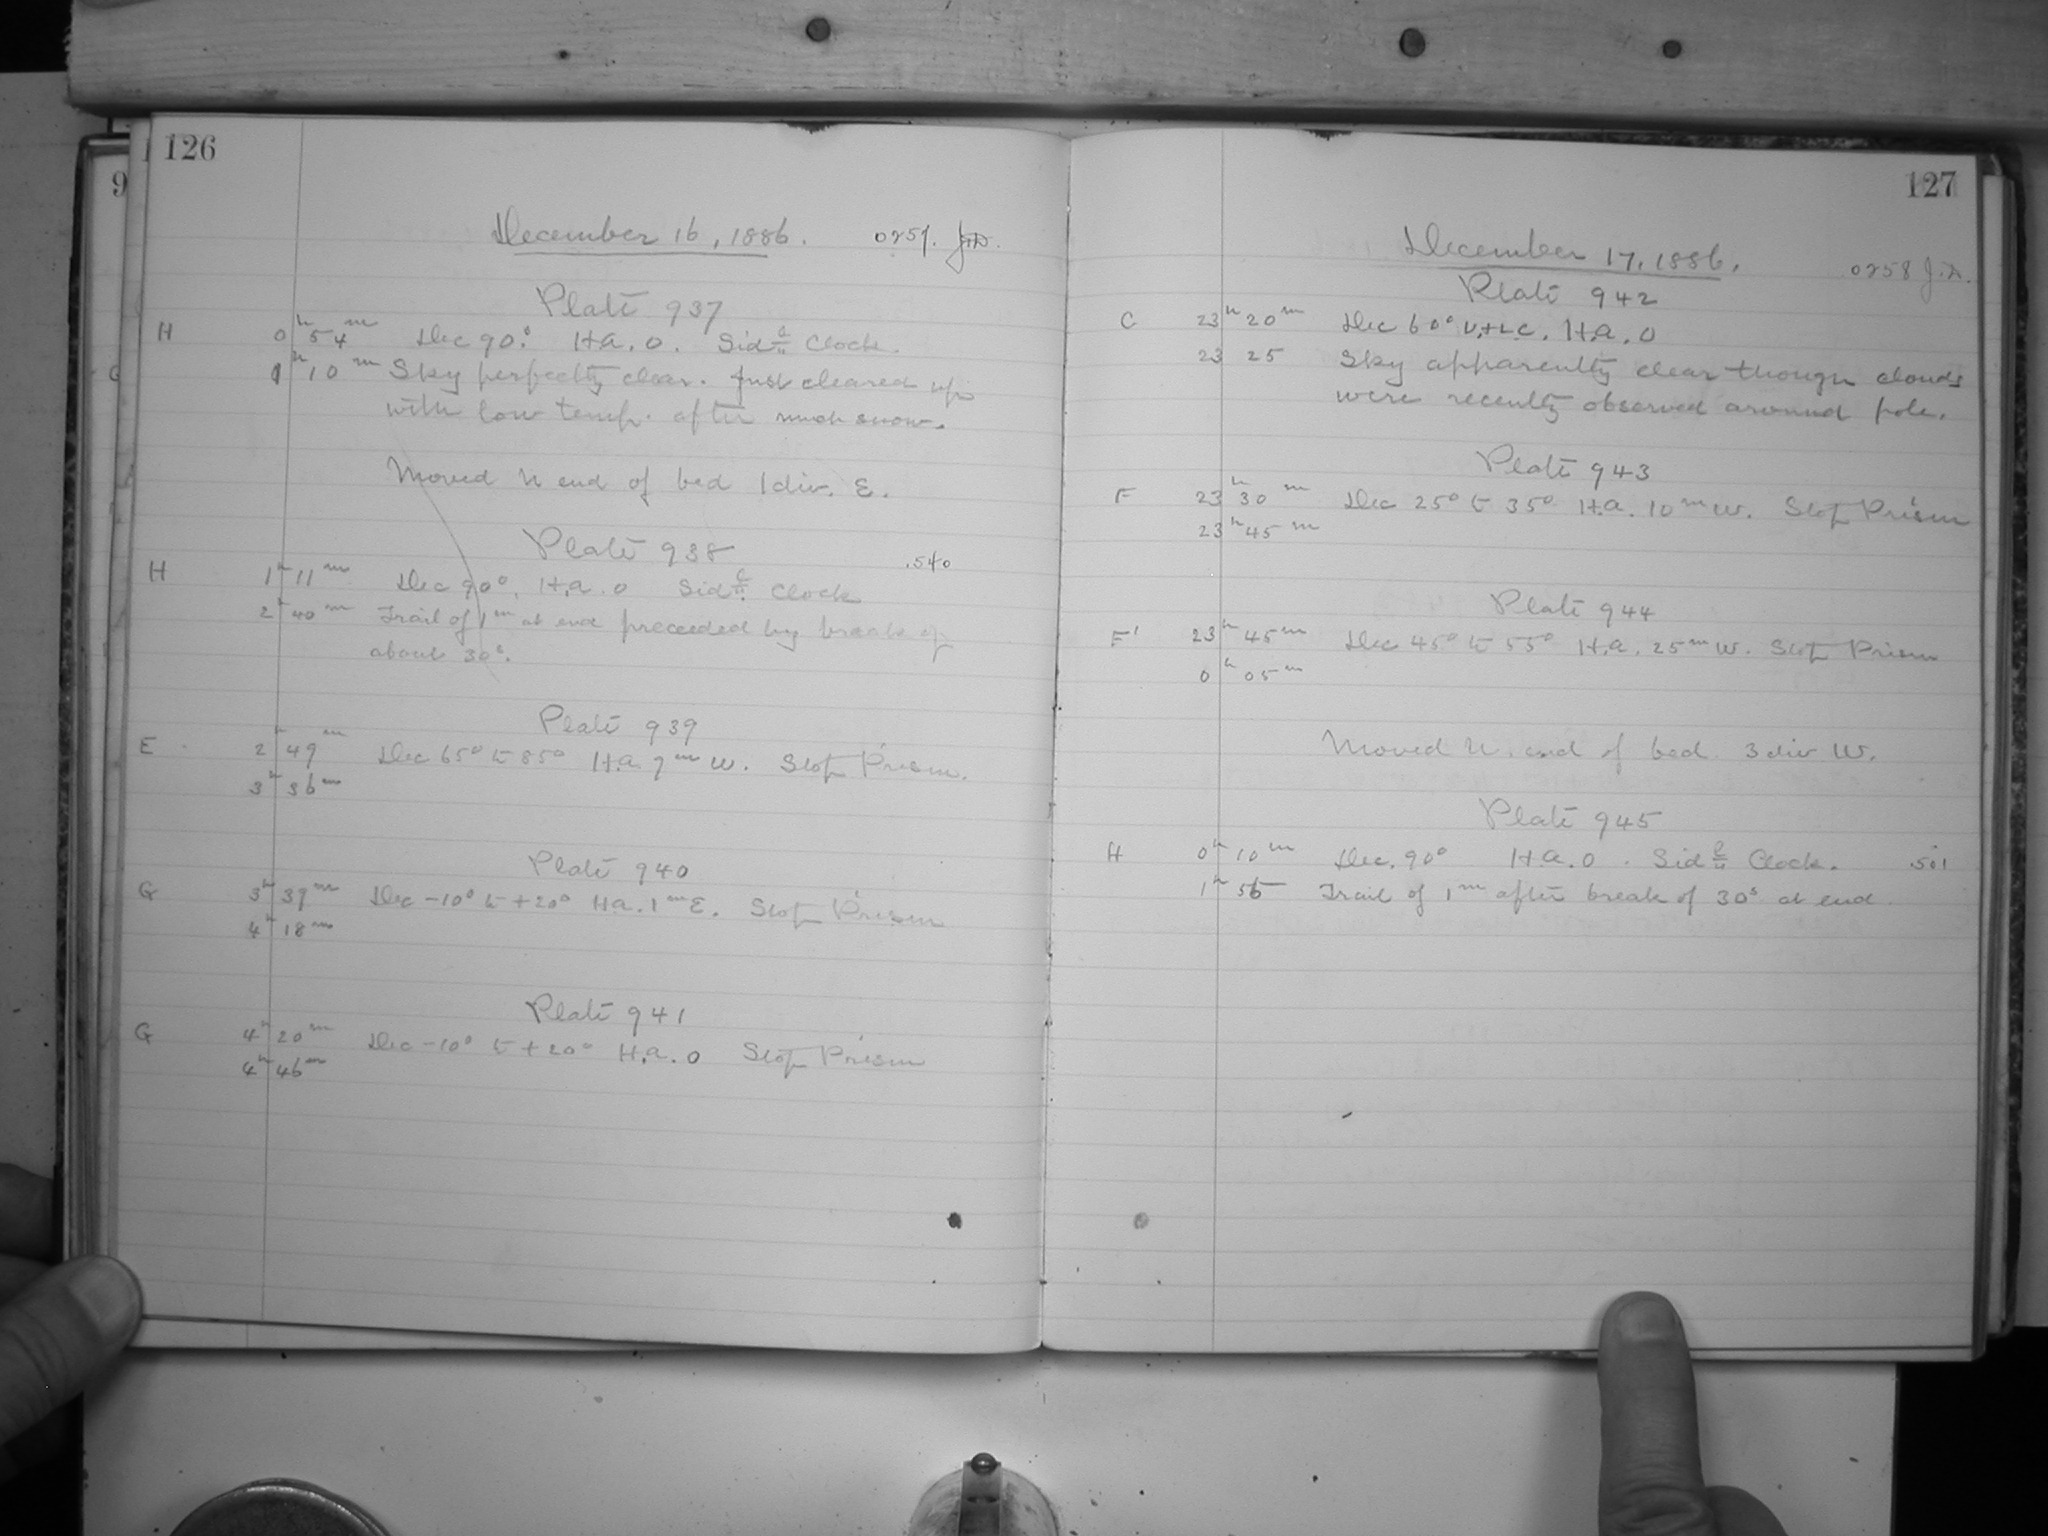 126
9
December 16, 1886. 0257. J.D.
Plate 937
H 0h 54m Dec 90°. H.a. 0. Sid. Clock.
1h 10m Sky perfectly clear. Just cleared up
with low temp. after much snow.
Moved N end of bed 1 div. E.
Plate 938 .540
H 1h 11m Dec 90°. H.a. 0 Sid. Clock
2h 40m Trail of 1m at end preceded by break of
about 30s.
Plate 939
E 2h 49m Dec 65° to 85° H.a. 9m W. Stop Prism.
3h 36m
Plate 940
G 3h 39m Dec -10° to +20° H.a. 1m E. Stop Prism
4h 18m
Plate 941
G 4h 20m Dec -10° to +20° H.a. 0 Stop Prism
4h 46m
127
December 17, 1886. 0258 J.D.
Plate 942
C 23h 20m Dec 60° U.+L.C. H.a. 0
23 25 Sky apparently clear though clouds
were recently observed around pole.
Plate 943
F 23h 30m Dec 25° to 35° H.a. 10m W. Stop Prism
23h 45m
Plate 944
E' 23h 45m Dec 45° to 55° H.a. 25m W. Stop Prism
0h 05m
Moved N. end of bed 3 div W.
Plate 945
H 0h 10m Dec. 90° H.a. 0. Sid. Clock. .501
1h 56 Trail of 1m after break of 30s at end